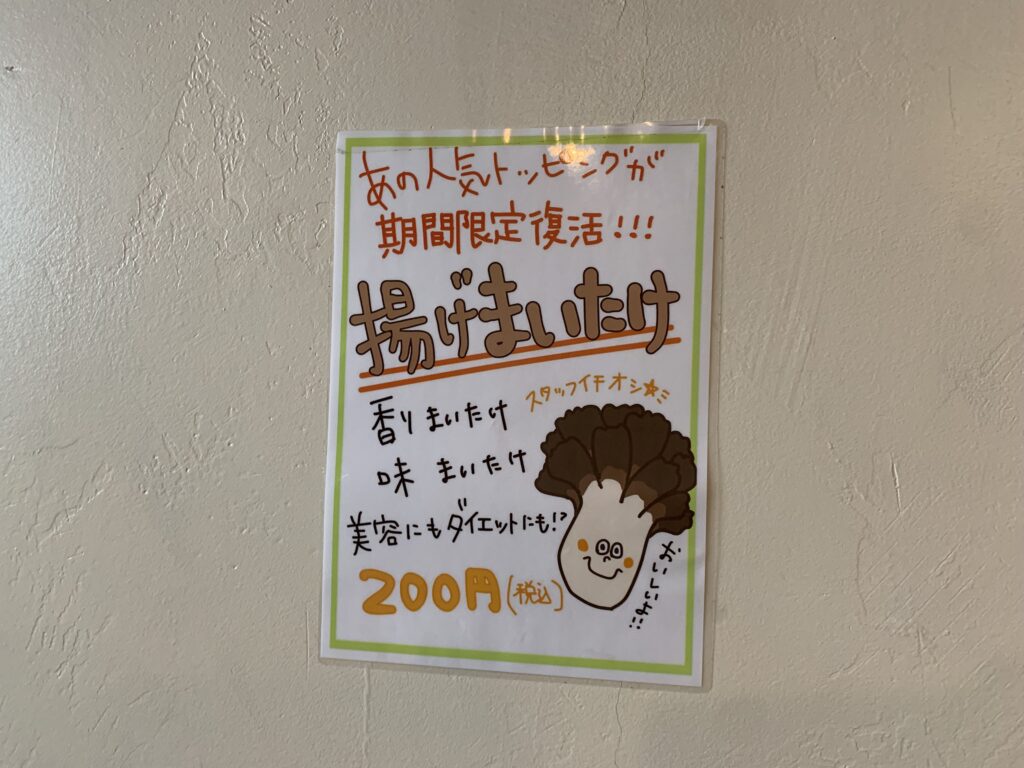 あの人気トッピングが
期間限定復活!!!
揚げまいたけ
スタッフイチオシ☆
香りまいたけ
味 まいたけ
美容にもダイエットにも!?
200円(税込)
おいしいよ!!